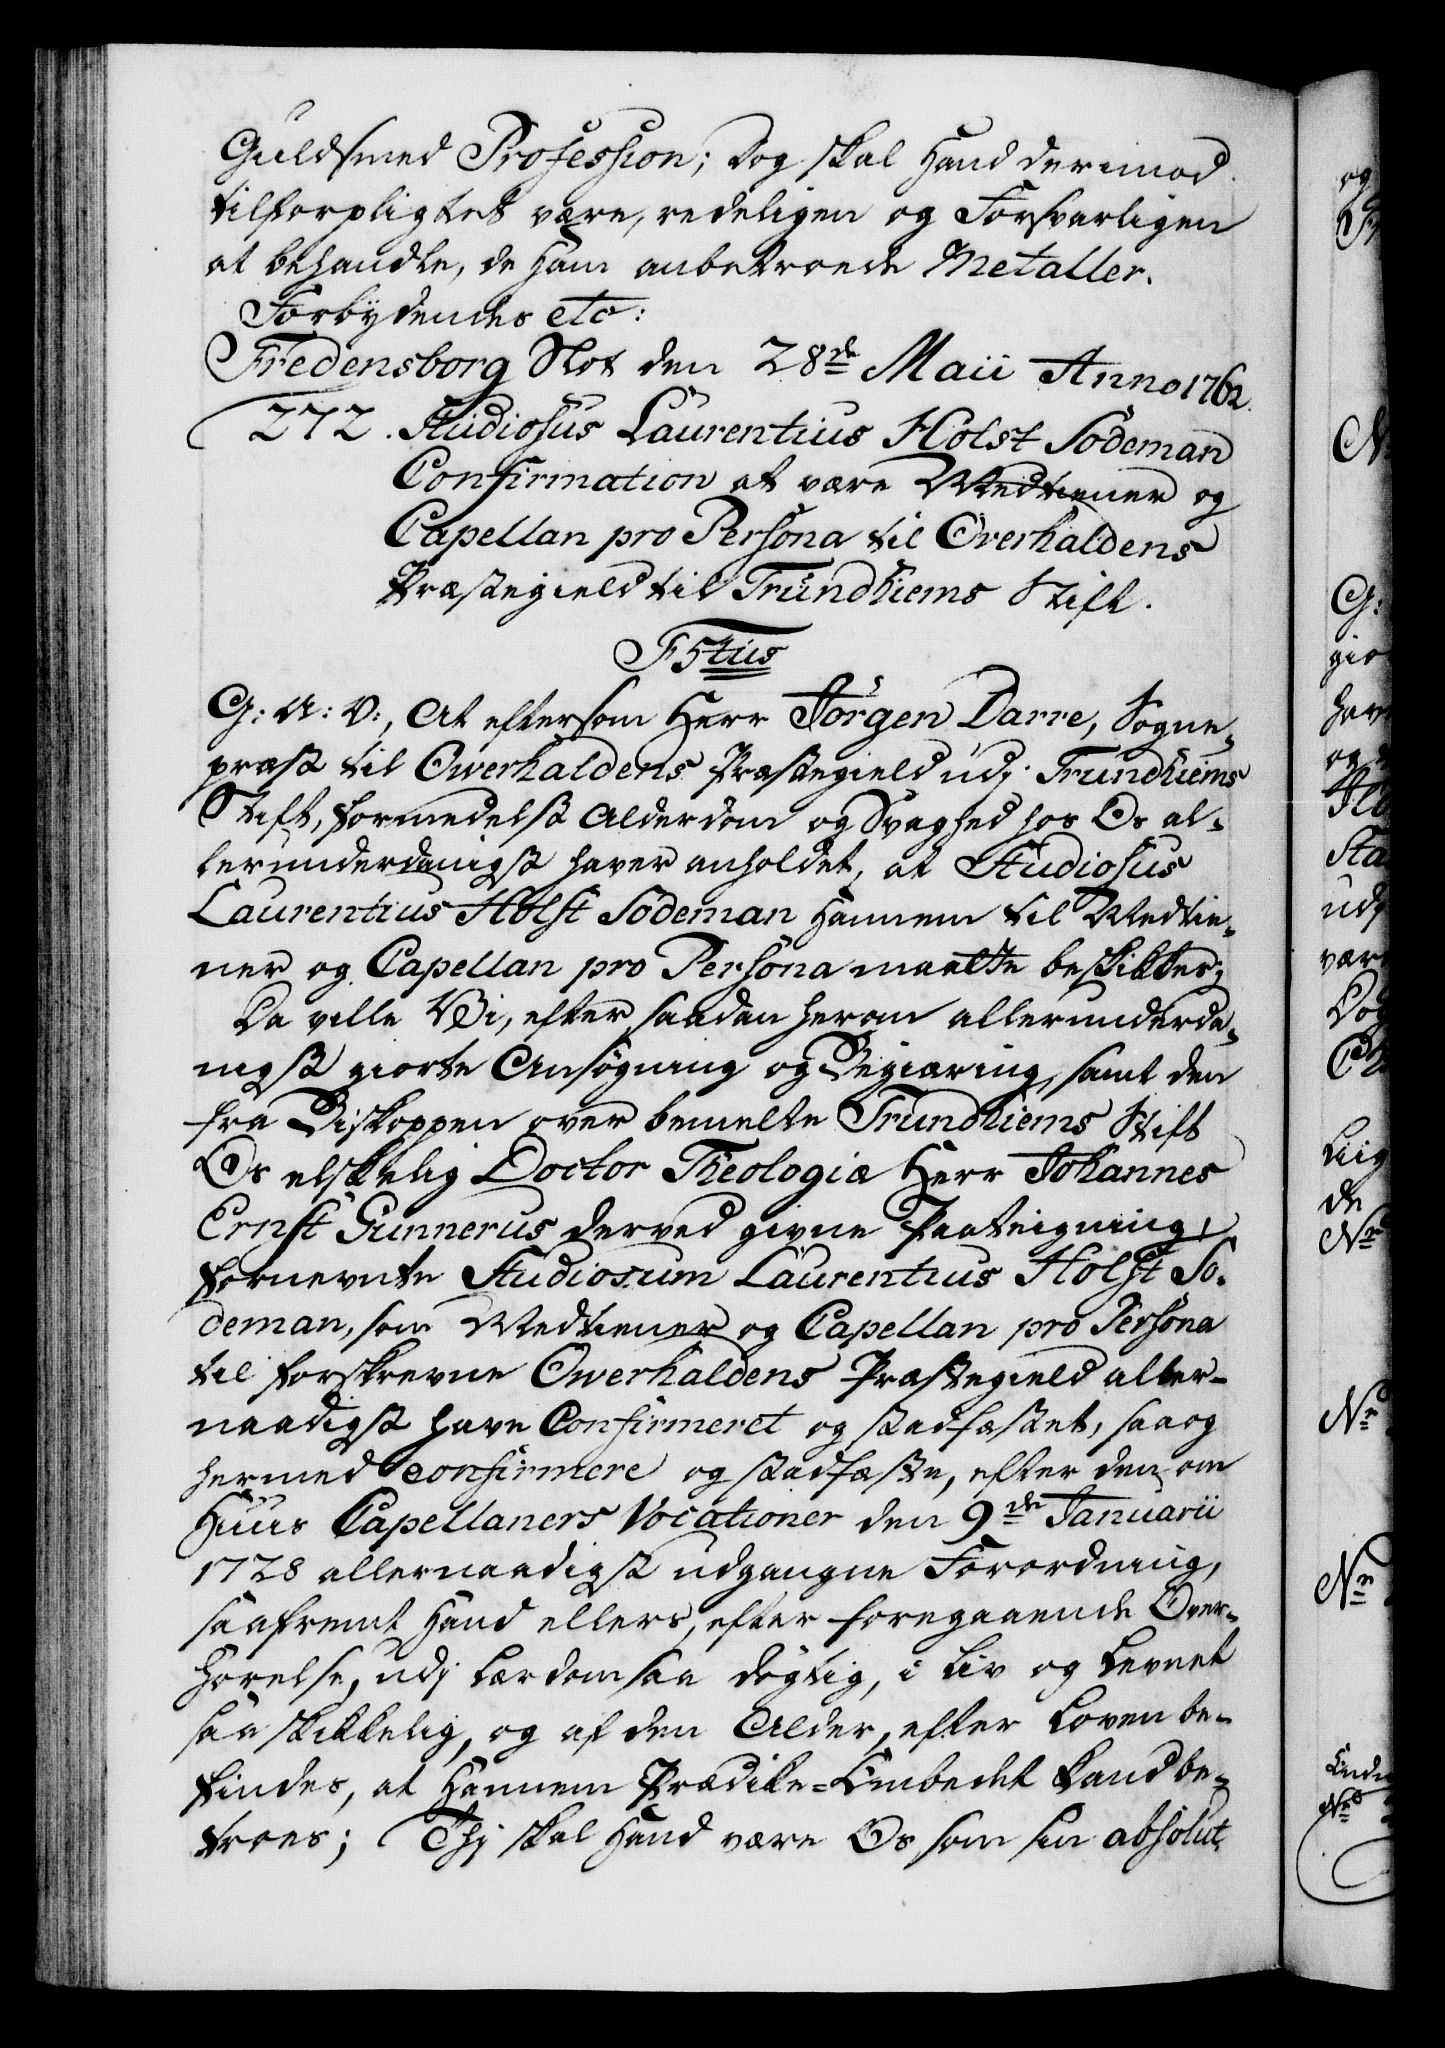 Guldsmed Profession; dog skal Hand derimod
tilforpligtet være, redeligen og Forsvarligen
at behandle, de Ham anbetroede Metaller.
Forbydendes etc:
Fredensborg Slot den 28de Maii Anno 1762.
272. Studiosus Laurentius Holst Sodeman
Confirmation at være Medtiener og
Capellan pro Persona til Overhaldens
Præstegield til Trundhiems Stift.
F5tus
G: A: V:, At eftersom Herr Jørgen Darre, Sogne-
præst til Owerhaldens Præstegield udj Trundhiems
Stift, formedelst Alderdom og Svaghed hos Os al-
lerunderdanigst haver anholdet, at Studiosus
Laurentius Holst Sodeman Hannem til Medtie-
ner og Capellan pro Persona maatte beskikkes;
Da ville Vi, efter saadan herom allerunderda-
nigst giorte Ansøgning og Begiæring, samt den
fra Biskoppen over bemelte Trundhiems Stift
Os elskelig Doctor Theologiæ Herr Johannes
Ernst Gunnerus derved givne Paateigning,
fornevnte Studiosum Laurentius Holst So-
deman, som Medtiener og Capellan pro Persona
til forskrevne Owerhaldens Præstegield aller-
naadigst have Confirmeret og stadfæstet, saa og
hermed confirmere og stadfæste, efter den om
Huus Capellaners Vocationer den 9de Januarii
1728 allernaadigst udgangne Forordning,
saafremt Hand ellers, efter foregaaende Over-
hørelse, udj Lærdom saa dygtig, i Liv og Levnet
saa skikkelig, og af den Alder, efter Loven be-
findes, at Hannem Prædike-Embedet kand be-
troes; Thj skal Hand være Os som sin absolut